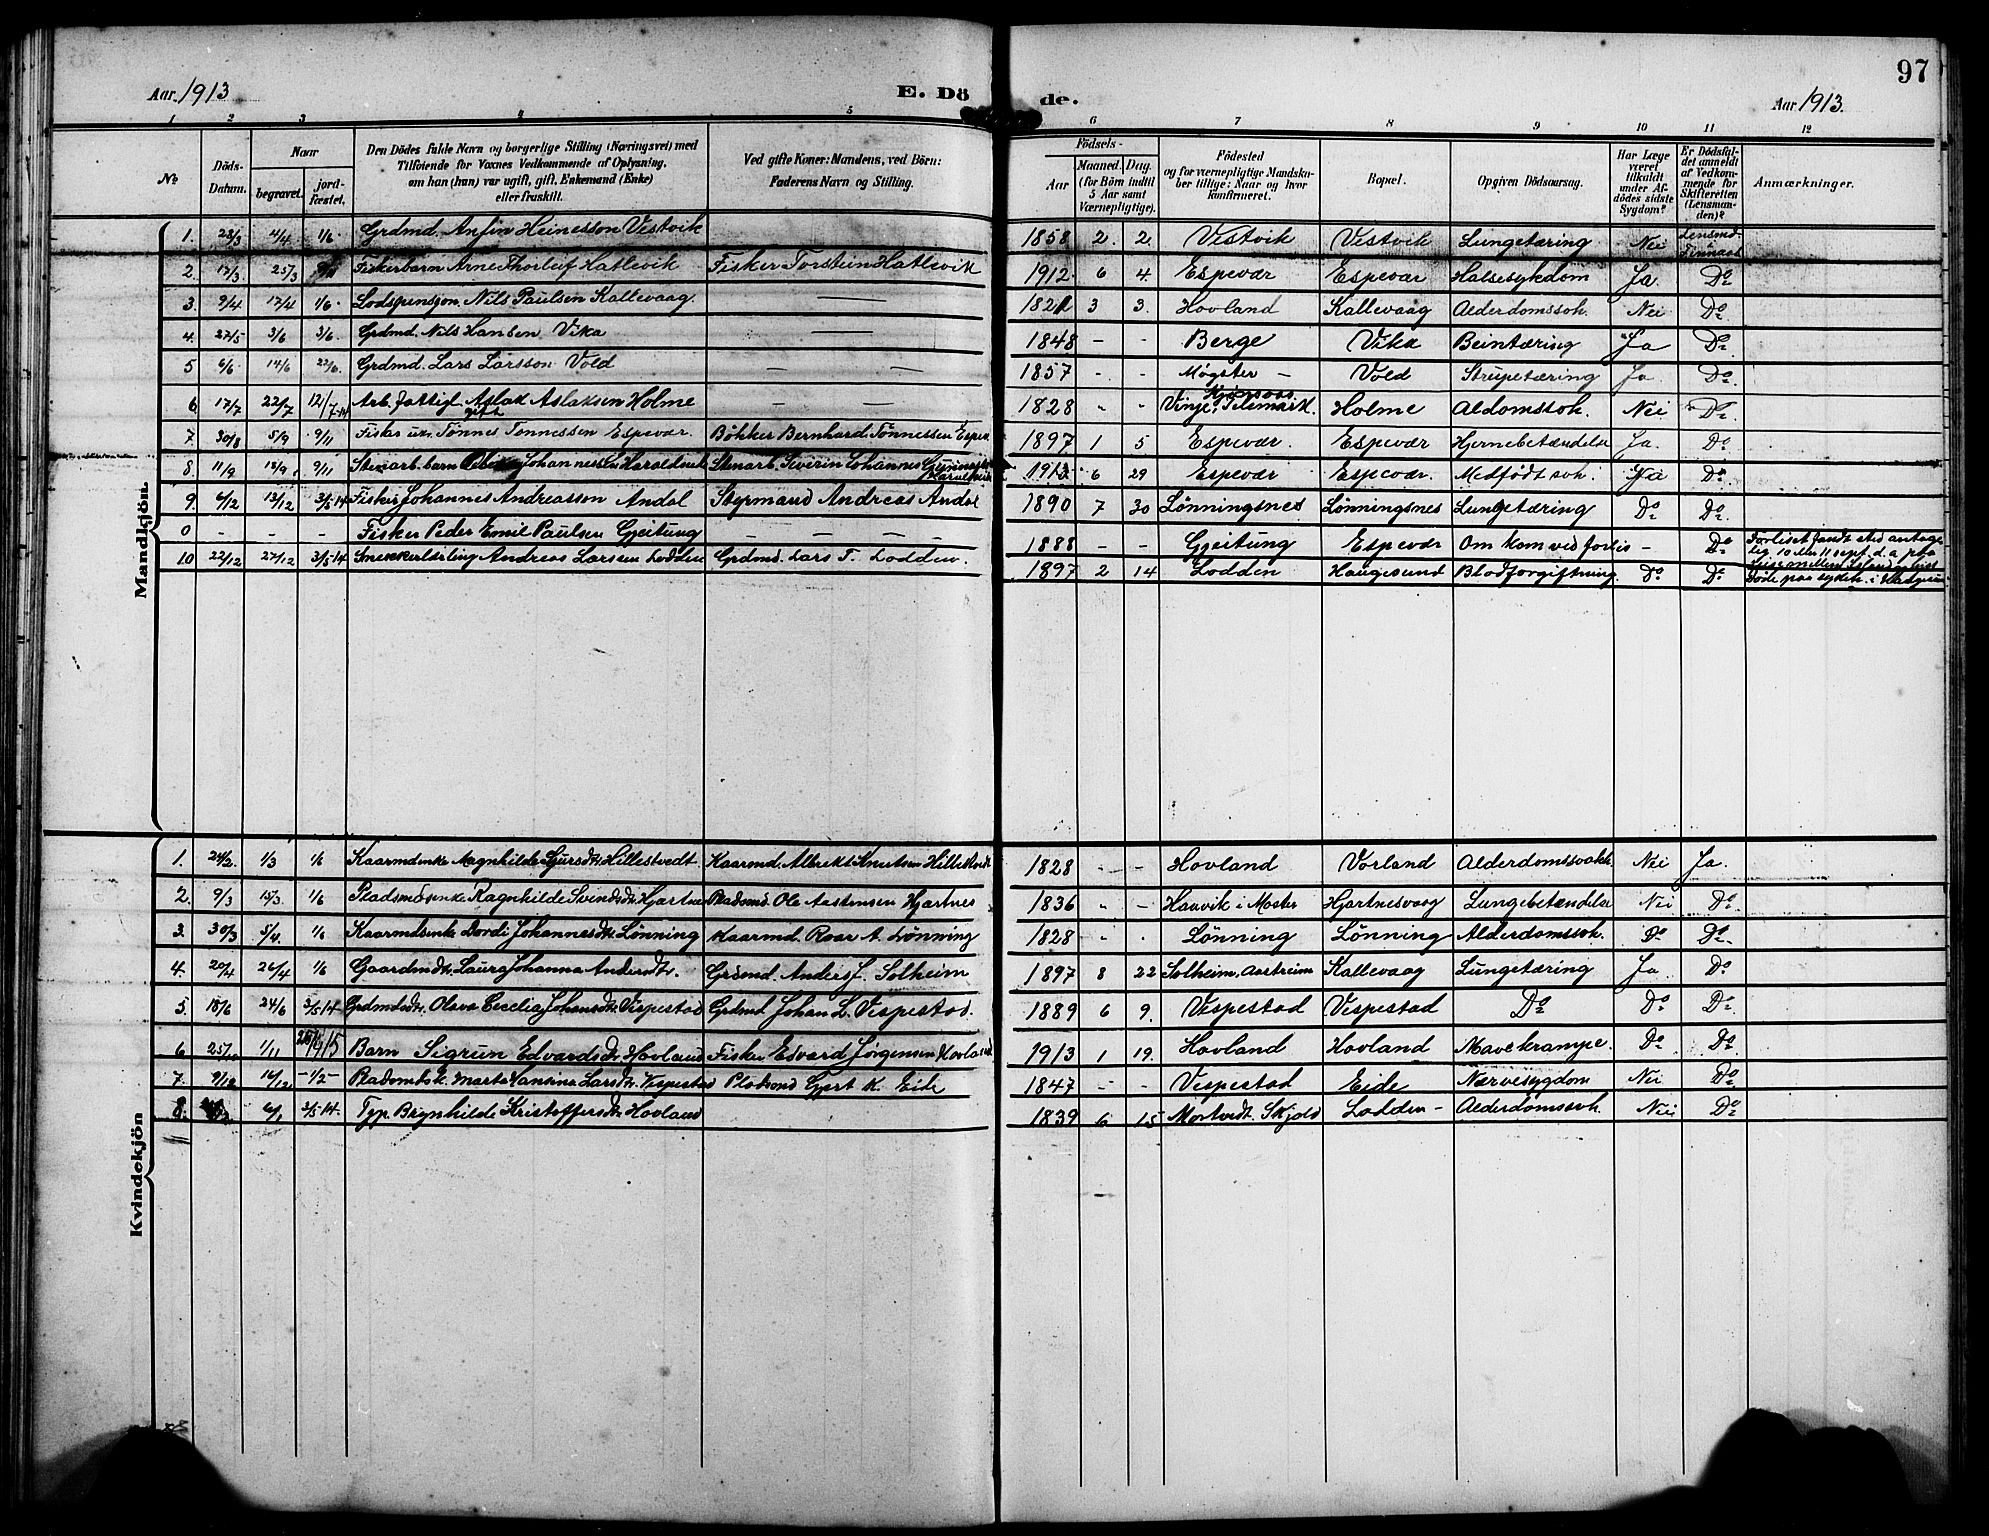 97
Aar. 1913
E. Dö
de.
Aar 1913.
1 2 3 4 5 6 7 8 9 10 11 12
No
Döds-Datum.
Naar
begravet.
jord-fæstet.
Den Dödes fulde Navn og borgerlige Stilling (Næringsvei) med
Tilföiende for Voxnes Vedkommende af Oplysning,
om han (hun) var ugift, gift, Enkemand (Enke)
eller fraskilt.
Ved gifte Koner: Mandens, ved Börn:
Faderens Navn og Stilling.
Födsels-
Aar
Maaned. Dag.
(for Börn indtil
5 Aar samt
Værnepligtige).
Födested
og for værnepligtige Mandska-
ber tillige: Naar og hvor
konfirmeret.
Bopæl.
Opgiven Dödsaarsag.
Har Læge
været
tilkaldt
under Af-
dödes sidste
Sygdom?
Er Dödsfal-
det anmeldt
af Vedkom-
mende for
Skifteretten
(Lensman-
den)?
Anmærkninger.
Mandkjön.
1. 28/3 4/4 1/6 Grdmd. Anfin Heinesson Vestvik 1858 2 2 Vestvik Vestvik Lungetæring Nei Lensmd. i Finnaas
2. 17/3 25/3 Fiskerbarn Arne Thorleif Hatlevik Fisker Torstein Hatlevik 1912 6 4. Espevær Espevær Halsesykdom Ja D:o
3. 9/4 17/4 1/6. Lodspensjon. Nils Paulsen Kallevaag — — 1821 3 3. Hovland Kallevaag Alderdomssvk. Nei D:o
4. 27/5 3/6 3/6. Grdmd. Nils Hansen Vika — — 1848 - - Berge Vika Beintæring Ja D:o
5 6/6 14/6 22/6. Grdmd. Lars Larsson Vold — — 1857 - - Møgster — Vold Strupetæring Ja D:o
6. 17/7 22/7 12/7-14 Arb. fattigl. gift Aslak Aslaksen Holme — — 1828 - - Vinje, Telemark. Holme Aldomssvk. Nei D:o
7. 30/8 5/9 9/11 Fisker u. Tønnes Tønnessen Espevær. Bøkker Bernhard Tønnessen Espev. 1897 1 5 Espevær. Espevær Hjernebetændelse Ja. D:o
8. 11/9 18/9 9/11 Stenarb. barn Johannes Haraldseid Stenarb. Severin Johannes 1913 6 29 Espevær Espevær. Medfødt svk. D:o
9. 6/12 13/12 3/5-14 Fisker Johannes Andreassen Andal Styrmand Andreas Andal 1890 7 30 Lønningsnes Lønningsnes Lungetæring D:o D:o
0 - - - Fisker Peder Emil Paulsen Gjeitung — — — 1888 - - Gjeitung Espevær Om kom ved forlis — D:o Forliset fandt sted antage-
lig 10 eller 11 sept. d. a. paa
10 22/12 27/12 3/5-14 Andreas Larsen Lodden Grdmd. Lars T. Lodden. 1897 2 14 Lodden Haugesund Blodforgiftning. D:o D:o Døde paa sykeh. i Haugesun
Kvindekjön
1. 24/2. 1/3 1/6 Kaarmdenke Magnhilde Sjursdtr. Hillestvedt Kaarmd. Albrikt Knutsen Hillestvedt 1828 - - Hovland Vorland Alderdomssvakh. Nei Ja.
2. 9/3 15/3. 1/6 Pladsmdsenke Ragnhilde Svendsdtr. Hjartnes Pladsmd. Ole Aastensen Hjartnes 1836 - - Haavik i Moster Hjartnesvaag Lungebetændelse Nei D:o
3. 30/3 5/4. 1/6 Kaarmdsenke Dordi Johannesdtr. Lønning Kaarmd. Roar A. Lønning 1828 - - Lønning Lønning Alderdomssvk. D:o D:o
4. 20/4 26/4 1/6 Gaardmdtr. Laura Johanna Andersdtr. Grdmd. Anders J. Solheim 1897 8 22 Solheim, Aastreim Kallevaag Lungetæring Ja. D:o
5. 18/6 24/6 3/5-14 Grdmdsdtr. Olava Cecelia Johansdtr. Vespestad Grdmd Johan L. Vespestad. 1889 6 9. Vespestad Vespestad D:o D:o D:o
6 25/10 1/11 Barn Sigrun Edvardsdtr. Hovland Fisker Edvard Jørgensen Hovland 1913 1 19. Hovland Hovland Mavekrampe. D:o D:o
7. 9/12 16/12 -1/2- Pladsmdsk. Marta Hansina Larsdtr. Vespestad Pladsmd Gjert K. Eide 1847 - - Vespestad Eide Nærvesygdom Nei D:o
8. 6/1 3/5-14. Brynhilde Kristoffersdtr. Hovland 1839 6 15 Mortvedt. Skjold Lodden — Alderdomssvk. Nei D:o